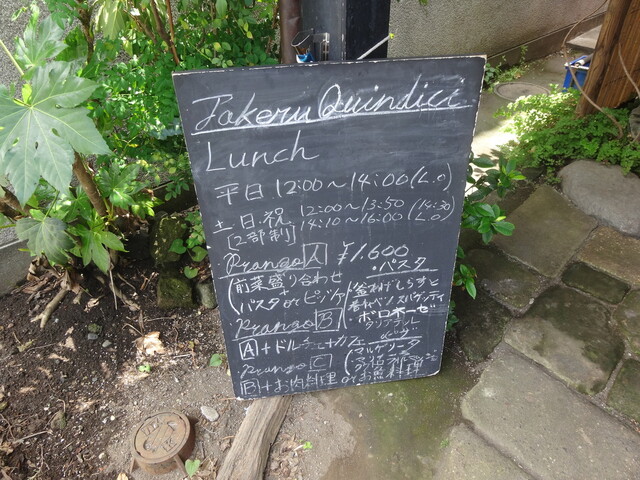 Takeru Quindici
Lunch
平日 12:00～14:00 (L.O)
土日・祝 12:00～13:50 (14:30)
[2部制] 14:10～16:00 (L.O)
Pranzo A ¥1.600
前菜盛り合わせ
パスタ or ピッツァ
・パスタ
釜あげしらすと
春キャベツ スパゲッティ
・ボロネーゼ
タリアテッレ
Pranzo B
A+ドルチェ+カフェ
マルゲリータ
Pranzo C
B+お肉料理 or お魚料理